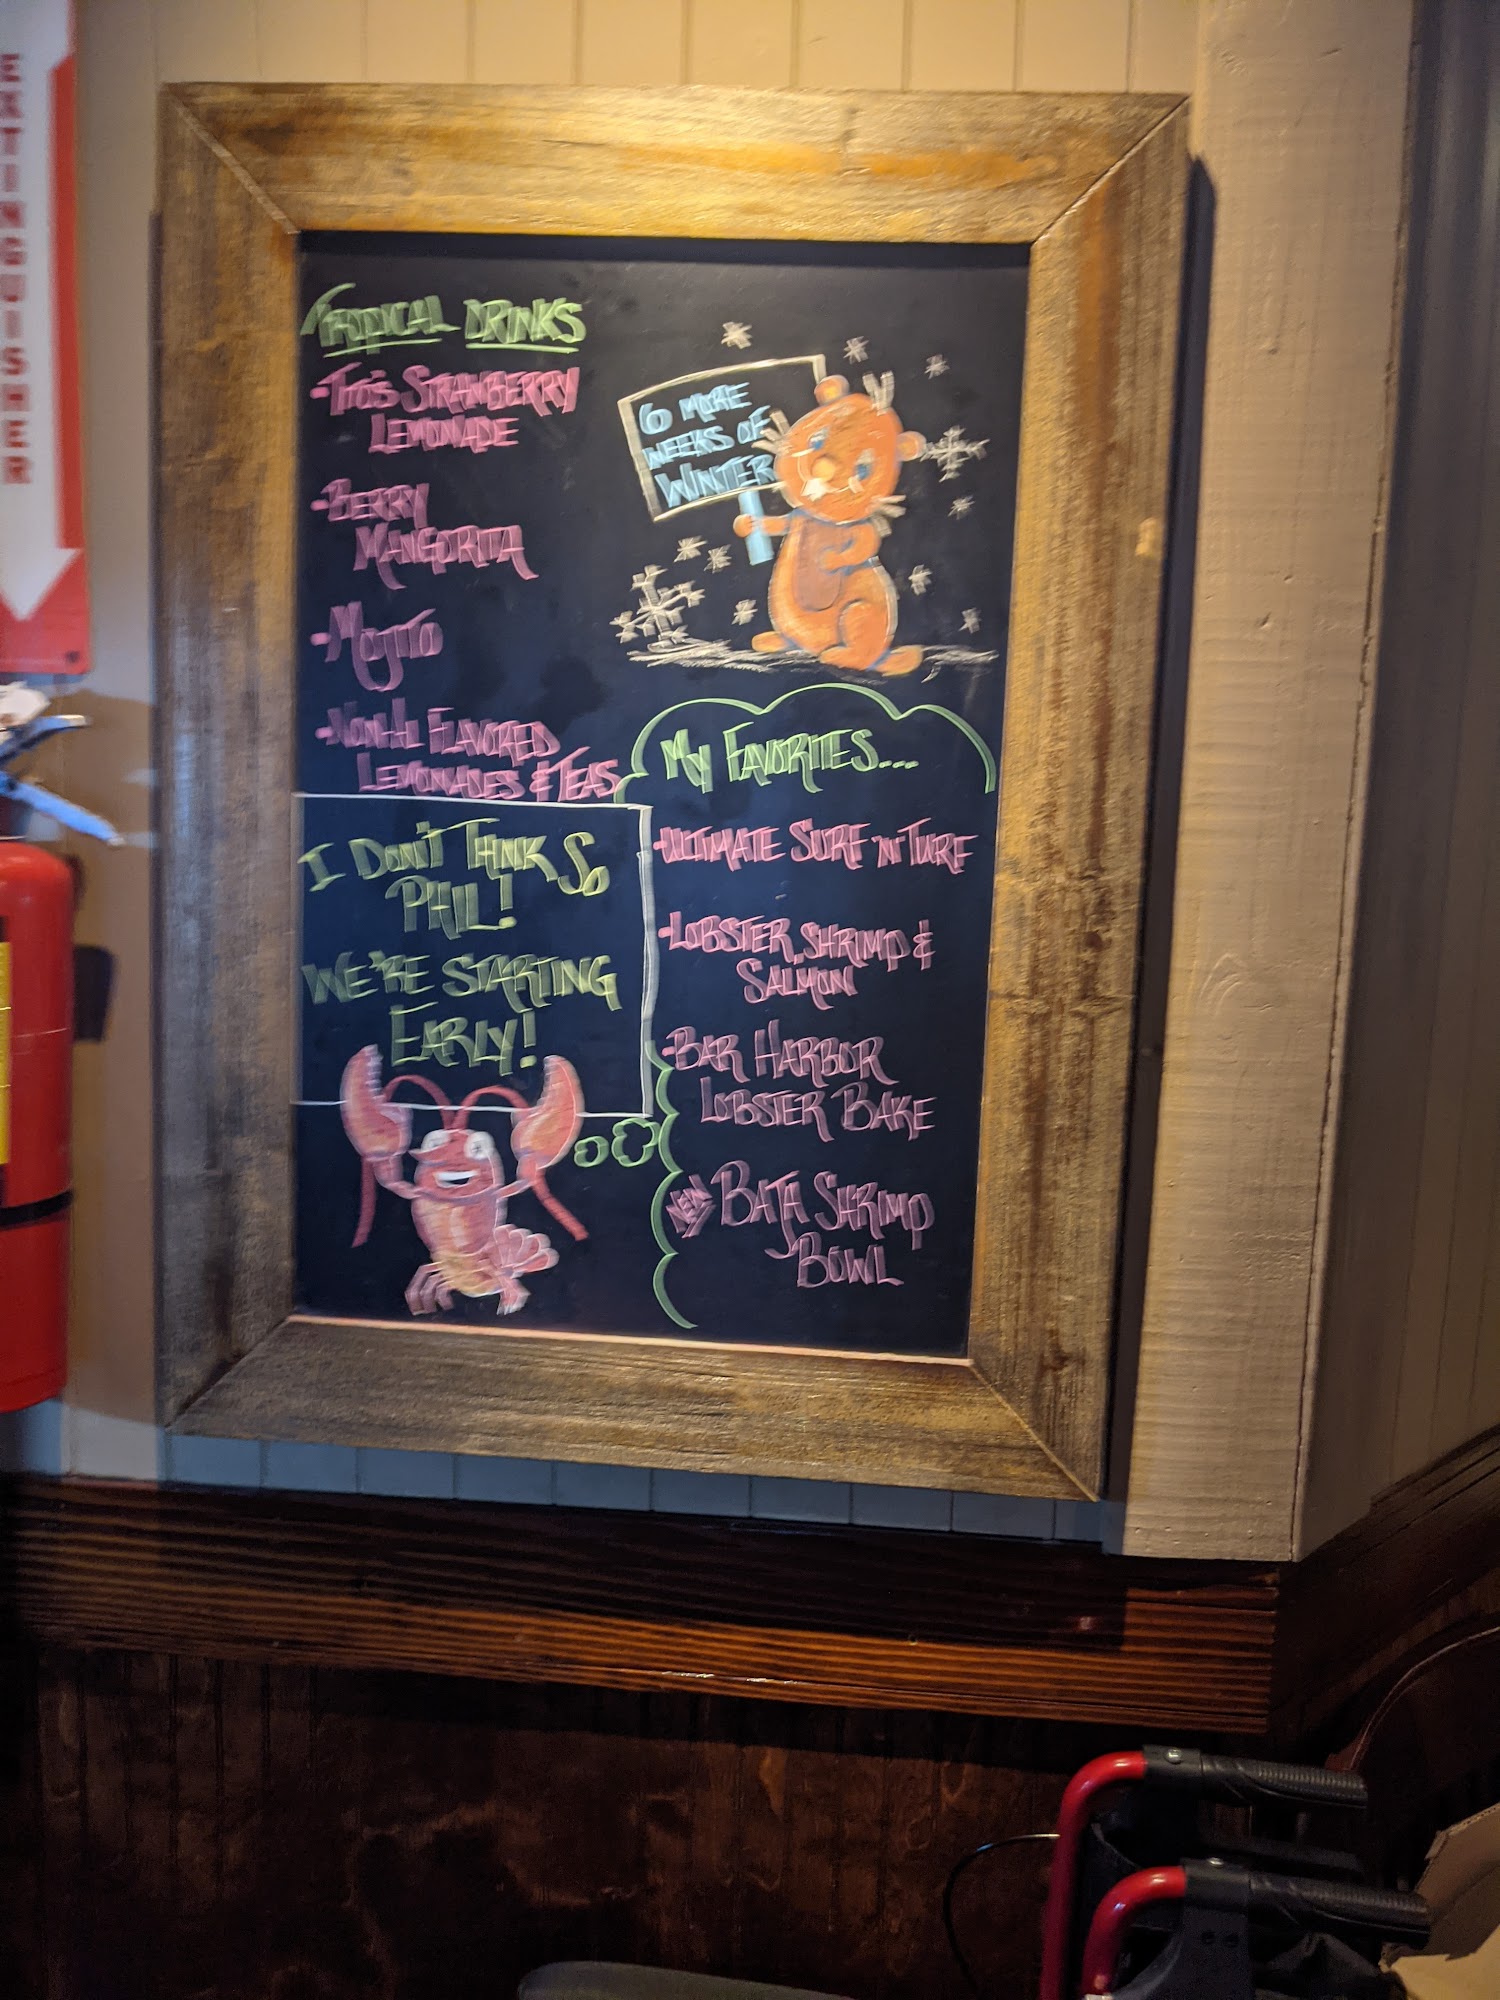 EXTINGUISHER
TROPICAL DRINKS
-TITO'S STRAWBERRY
LEMONADE
-BERRY
MANGORITA
-MOJITO
-NON-AL FLAVORED
LEMONADES & TEAS
6 MORE
WEEKS OF
WINTER
I DON'T THINK SO
PHIL!
WE'RE STARTING
EARLY!
MY FAVORITES....
-ULTIMATE SURF 'N' TURF
-LOBSTER, SHRIMP &
SALMON
-BAR HARBOR
LOBSTER BAKE
NEW BAJA SHRIMP
BOWL